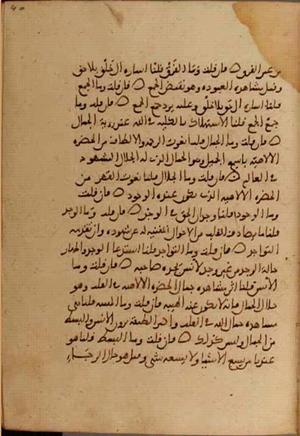 وعين الفرق فان قلت وما الفرق قلنا اشارة الى خلق بلا حق
وقيل مشاهدة العبودة وهو نقيض الجمع فان قلت وما الجمع
قلنا اشارة الى حق بلا خلق وعليه يرد جمع الجمع فان قلت وما
جمع الجمع قلنا الاستهلاك بالكلية في الله عند رؤية الجمال
فان قلت وما الجمال قلنا نعوت الرحمة والالطاف من الحضرة
الالاهية باسمه الجميل وهو الجمال الذي له الجلال المشهود
في العالم فان قلت وما الجلال قلنا نعوت القهر من
الحضرة الالاهية الذي يكون عنده الوجود فان قلت
وما الوجود قلنا وجدان الحق في الوجد فان قلت وما الوجد
قلنا ما يصادف القلب من الاحوال المفنية له عن شهوده وان تقدمه
التواجد فان قلت وما التواجد قلنا استدعا الوجد واظهار
حالة الوجد من غير وجد لانس يجده صاحبه فان قلت وما
الانس قلنا اثر مشاهدة جمال الحضرة الالاهية في القلب وهو
جلال الجمال فانه لا تكون عنه الهيبة فان قلت وما الهيبة قلنا هي
مشاهدة جمال الله في القلب واكثر الطبقة يرون الانس والبسط
من الجمال وليس كذلك فان قلت وما البسط قلنا هو
عندنا من يسع الاشيا ولا يسعه شي وقيل هو حال الرجاء